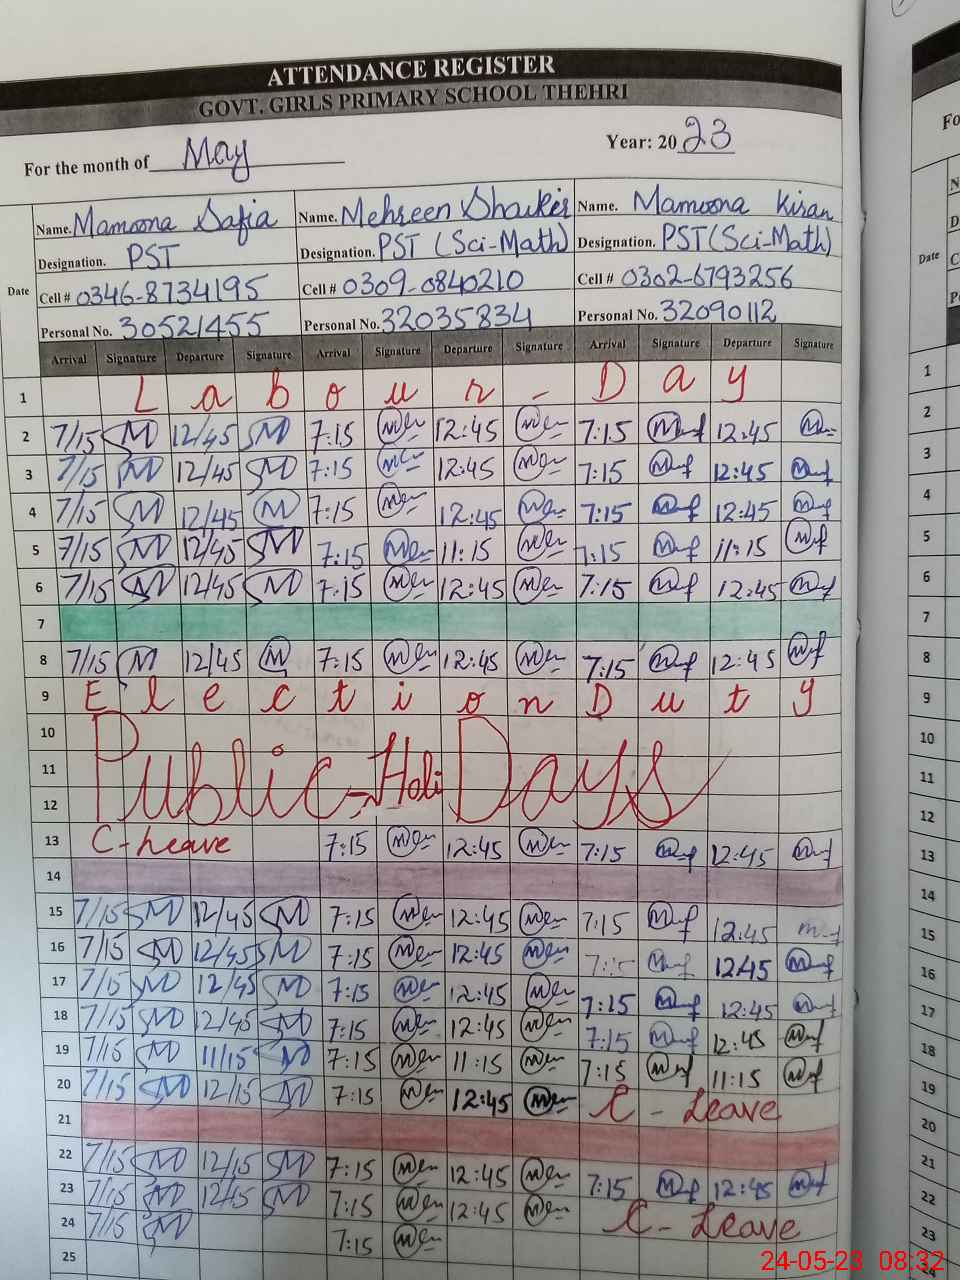 ATTENDANCE REGISTER
GOVT. GIRLS PRIMARY SCHOOL THEHRI
For the month of May Year: 2023
Name. Mamoona Safia Name. Mehreen Shakir Name. Mamoona Kiran
Designation. PST Designation. PST (Sci-Math) Designation. PST (Sci-Math)
Date Cell # 0346-8734195 Cell # 0309-0840210 Cell # 0302-6793256
Personal No. 30521455 Personal No. 32035834 Personal No. 32090112
Arrival Signature Departure Signature Arrival Signature Departure Signature Arrival Signature Departure Signature
1 Labour - Day
2 7/15 M 12/45 M 7:15 12:45 7:15 12:45
3 7/15 M 12/45 M 7:15 12:45 7:15 12:45
4 7/15 M 12/45 M 7:15 12:45 7:15 12:45
5 7/15 M 12/45 M 7:15 11:15 7:15 11:15
6 7/15 M 12/45 M 7:15 12:45 7:15 12:45
7
8 7/15 M 12/45 M 7:15 12:45 7:15 12:45
9 Election Duty
10
11 Public-Holi Days
12
13 C-Leave 7:15 12:45 7:15 12:45
14
15 7/15 M 12/45 M 7:15 12:45 7:15 12:45
16 7/15 M 12/45 M 7:15 12:45 7:15 12:45
17 7/15 M 12/45 M 7:15 12:45 7:15 12:45
18 7/15 M 12/45 M 7:15 12:45 7:15 12:45
19 7/15 M 11/15 M 7:15 11:15 7:15 11:15
20 7/15 M 12/15 M 7:15 12:45 C - Leave
21
22 7/15 M 12/15 M 7:15 12:45 7:15 12:45
23 7/15 M 12/45 M 7:15 12:45 C - Leave
24 7/15 M 7:15
25
Fo
Date
1
2
3
4
5
6
7
8
9
10
11
12
13
14
15
16
17
18
19
20
21
22
23
24
24-05-23 08:32